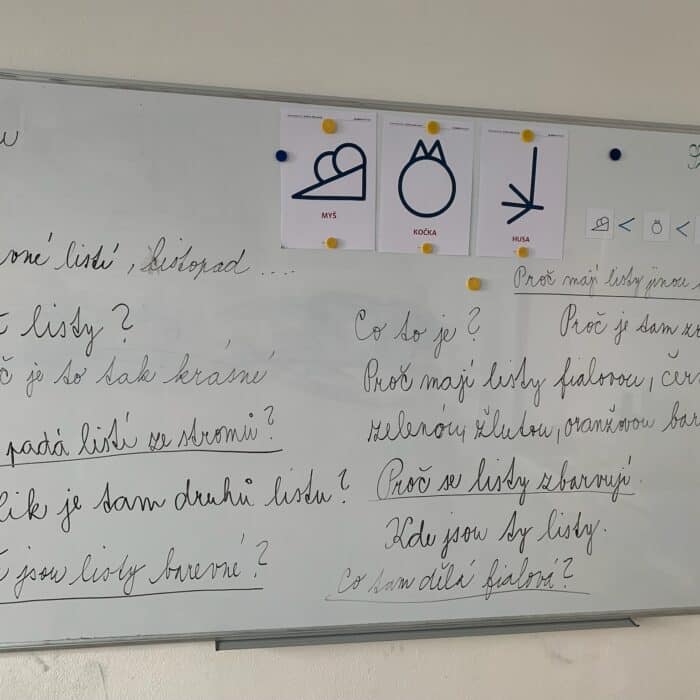 MYŠ
KOČKA
HUSA
< <
listí, listopad ....
Proč mají listy jinou
listy?
Co to je?
Proč je tam
je to tak krásné
Proč mají listy fialovou,
padá listí ze stromů?
zelenou, žlutou, oranžovou
je tam druhů listu?
Proč se listy zbarvují.
Kde jsou ty listy.
jsou listy barevné?
Co tam dělá fialová?